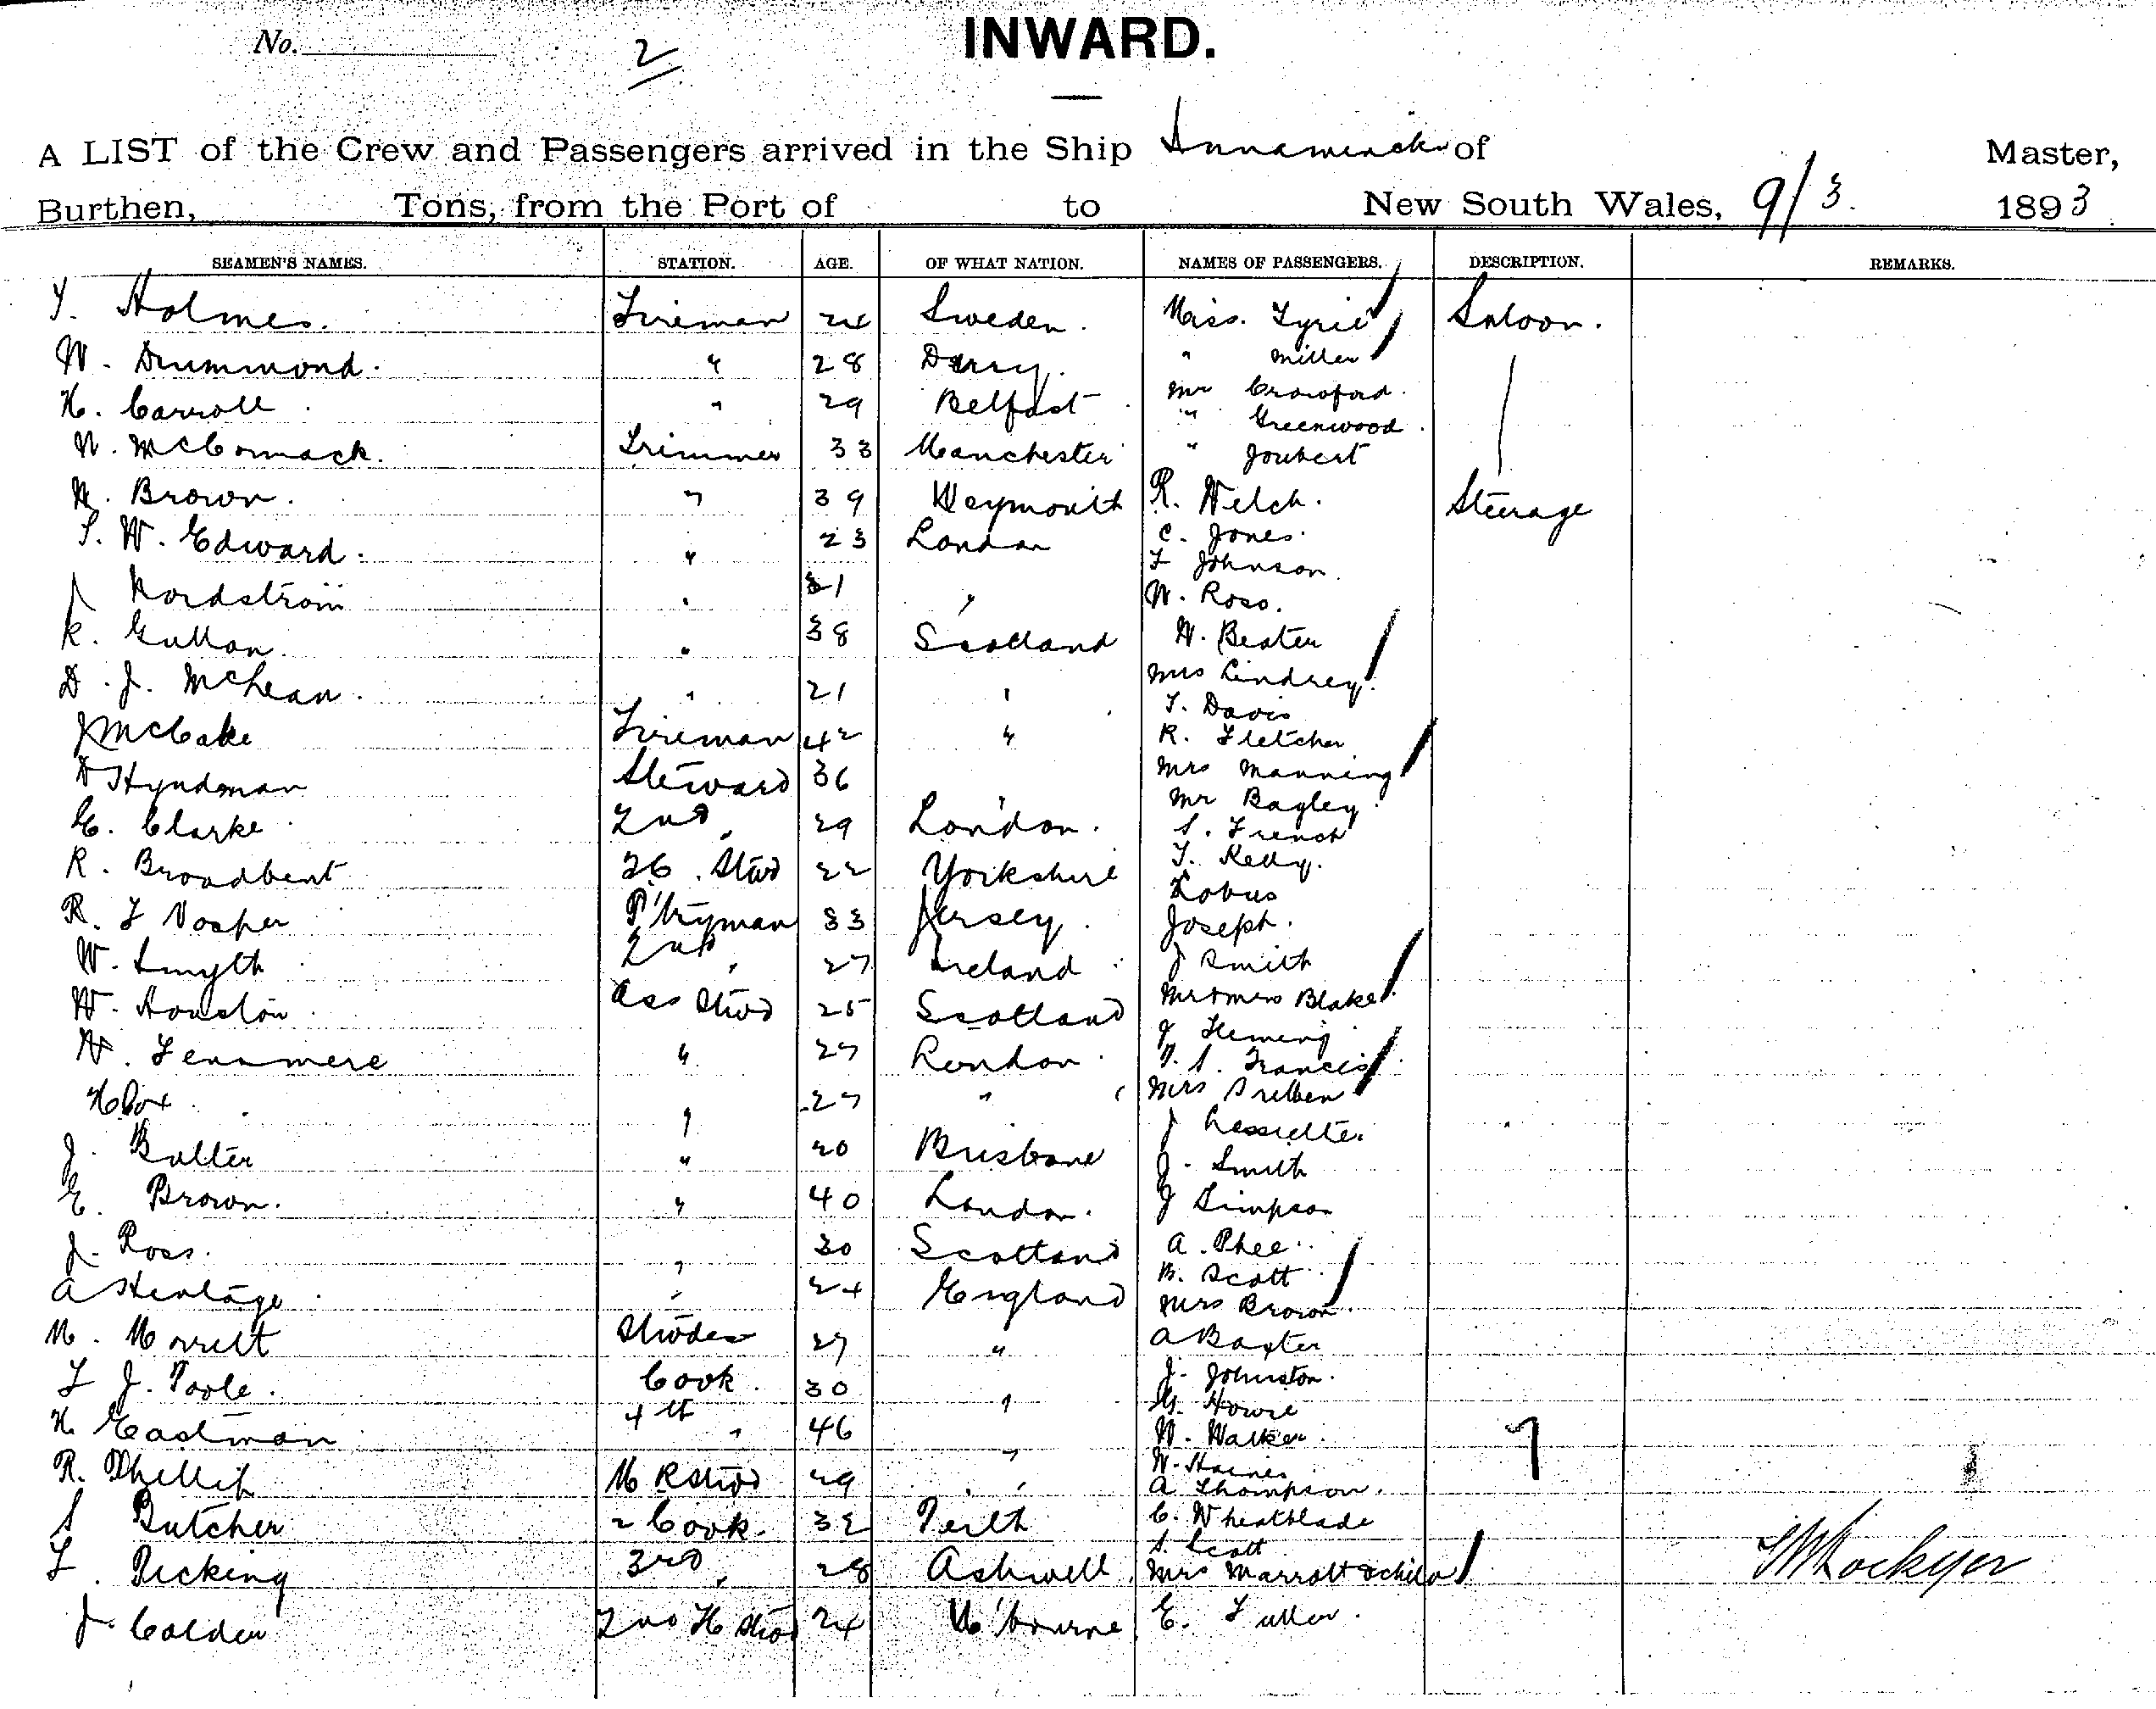 No. 2
INWARD.
A LIST of the Crew and Passengers arrived in the Ship of Master,
Burthen, Tons, from the Port of to New South Wales, 9/3. 1893
SEAMEN'S NAMES. STATION. AGE. OF WHAT NATION. NAMES OF PASSENGERS. DESCRIPTION. REMARKS.
Holmes. Fireman 24 Sweden. Miss. Saloon.
W. Drummond. " 28 Derry. " Miller
H. Carroll " 29 Belfast Mr Crawford.
" Greenwood
McCormack. Trimmer 33 Manchester " Joubert
Brown. " 39 Weymouth R. Welch. Steerage
W. Edward. " 23 London C. Jones.
F Johnson.
J Nordstrom " 31 " W. Ross.
R. " 38 Scotland W. Beater
D. J. McLean. " 21 " Mrs Lindrey.
T. Davis
J McCake Fireman 42 " R. Fletcher
D Hyndman Steward 36 Mrs Manning
Mr Bagley
E. Clarke 2nd " 29 London. S. French
R. Broadbent Stwd 22 Yorkshire T. Kelly.
Lobus
R. F Vosper P'tryman 33 Jersey. Joseph.
W. Smyth 2nd " 27 Ireland J Smith
W. Houston Ass Stwd 25 Scotland Mr & Mrs Blake
J Fleming
W. Fennmere " 27 London. S. Francis
H Cox " 27 " Mrs
J
J. Butter " 20 Brisbane J. Smith
E. Brown. " 40 London. J Simpson
J. Ross. " 30 Scotland A. Phee
B. Scott
A Hentage " 24 England Mrs Brown.
M. Morrett Stwdess 27 " A Baxter
F J. Poole. Cook. 30 " J. Johnston.
G. Howie
H Eastman 4th " 46 " W. Walker.
W. Haines
R. Phillip M R Stwd 29 " A Thompson.
S Butcher 2 Cook. 32 Perth C. Wheatblade
S. Scott
F. Picking 3rd " 28 Ashwell Mrs Marratt & child
J Calder 2nd H Stwd 24 M'bourne E. Fuller.
Lockyer